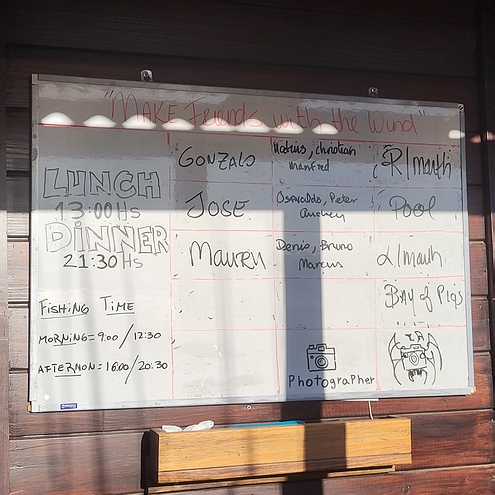 "MAKE Friends with the Wind"
LUNCH
13:00 Hs
DINNER
21:30 Hs
FISHING TIME
MORNING = 9:00 / 12:30
AFTERNON = 16:00 / 20:30
GONZALO
Matias, christian
Manfred
R/mouth
JOSE
Osvaldo, Peter
Pool
MAURU
Denis, Bruno
Marcus
L/mouth
BAY of PIgs
Photographer